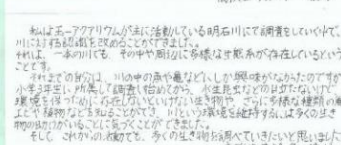 私は王一アクアリウムが主に活動している明石川にて調査をしていく中で、
川に対する認識を改めることができました。
それは、一本の川でも、その中や周辺に多様な生態系が存在しているという
ことです。
それまでの自分は、川の中の魚や亀などにしか興味がなかったのですが
小学3年生に所属して調査し始めてから、水生昆虫などの目立たないけど
環境を保つために存在しないといけない生き物や、さらに多様な種類の
植物などを知ることができ、川という環境を維持するには多くの生き
物の助けがいることに気づくことができました。
そして、これからの活動でも、多くの生き物を調べていきたいと思いました